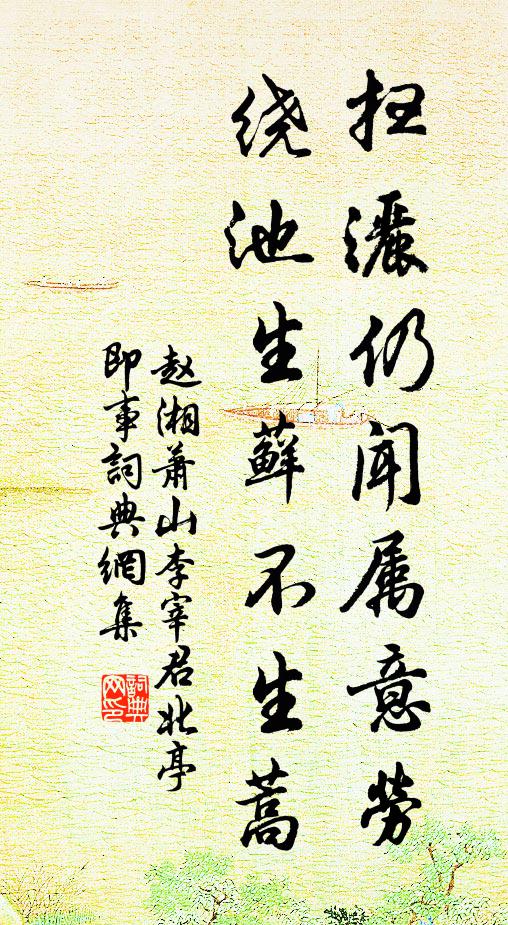 扫灑仍闻属意勞
绕池生蘚不生蒿
赵湘萧山李宰君北亭
即事詞典網集
詞典网印